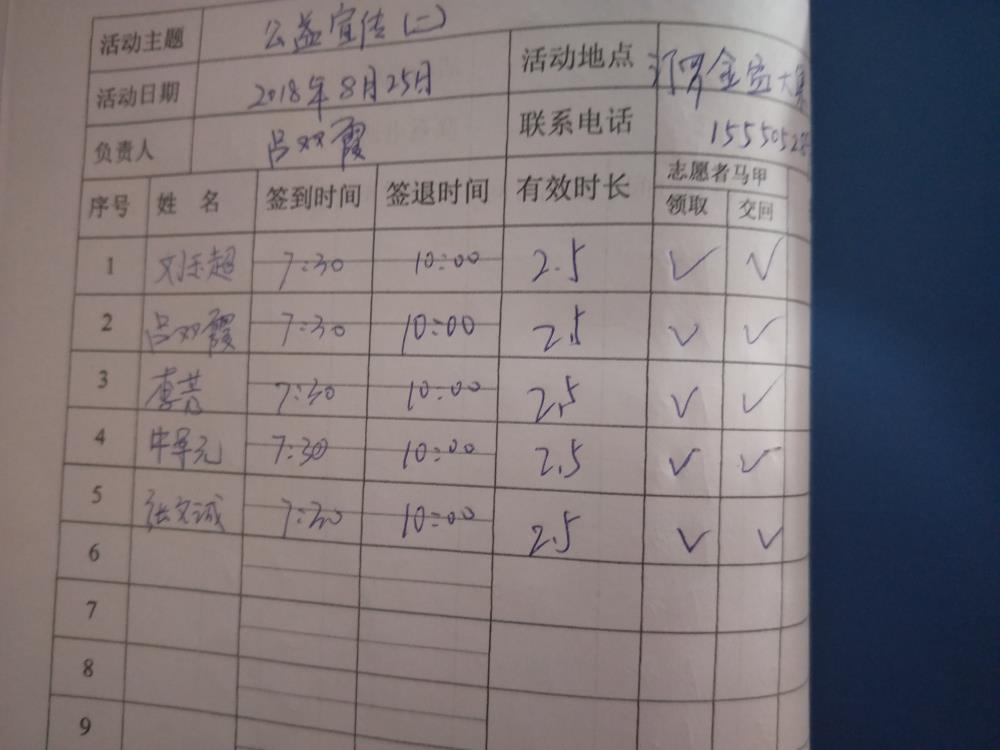 活动主题 公益宣传(二)
活动日期 2018年8月25日 活动地点
负责人 吕双霞 联系电话 15550528
序号 姓名 签到时间 签退时间 有效时长 志愿者马甲
领取 交回
1 刘乐超 7:30 10:00 2.5 ✓ ✓
2 吕双霞 7:30 10:00 2.5 ✓ ✓
3 7:30 10:00 2.5 ✓ ✓
4 7:30 10:00 2.5 ✓ ✓
5 张文诚 7:30 10:00 2.5 ✓ ✓
6
7
8
9